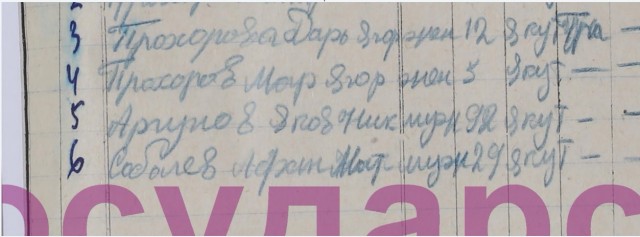 3 Прохорова Дарь Егор жен 12 якут Пра —
4 Прохоров Мар Егор жен 5 якут — —
5 Аргунов Яков Ник муж 92 якут — —
6 Соболев Афан Мат муж 29 якут — —
осударс